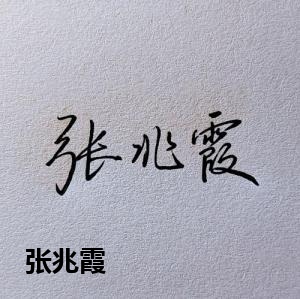 张兆霞
张兆霞